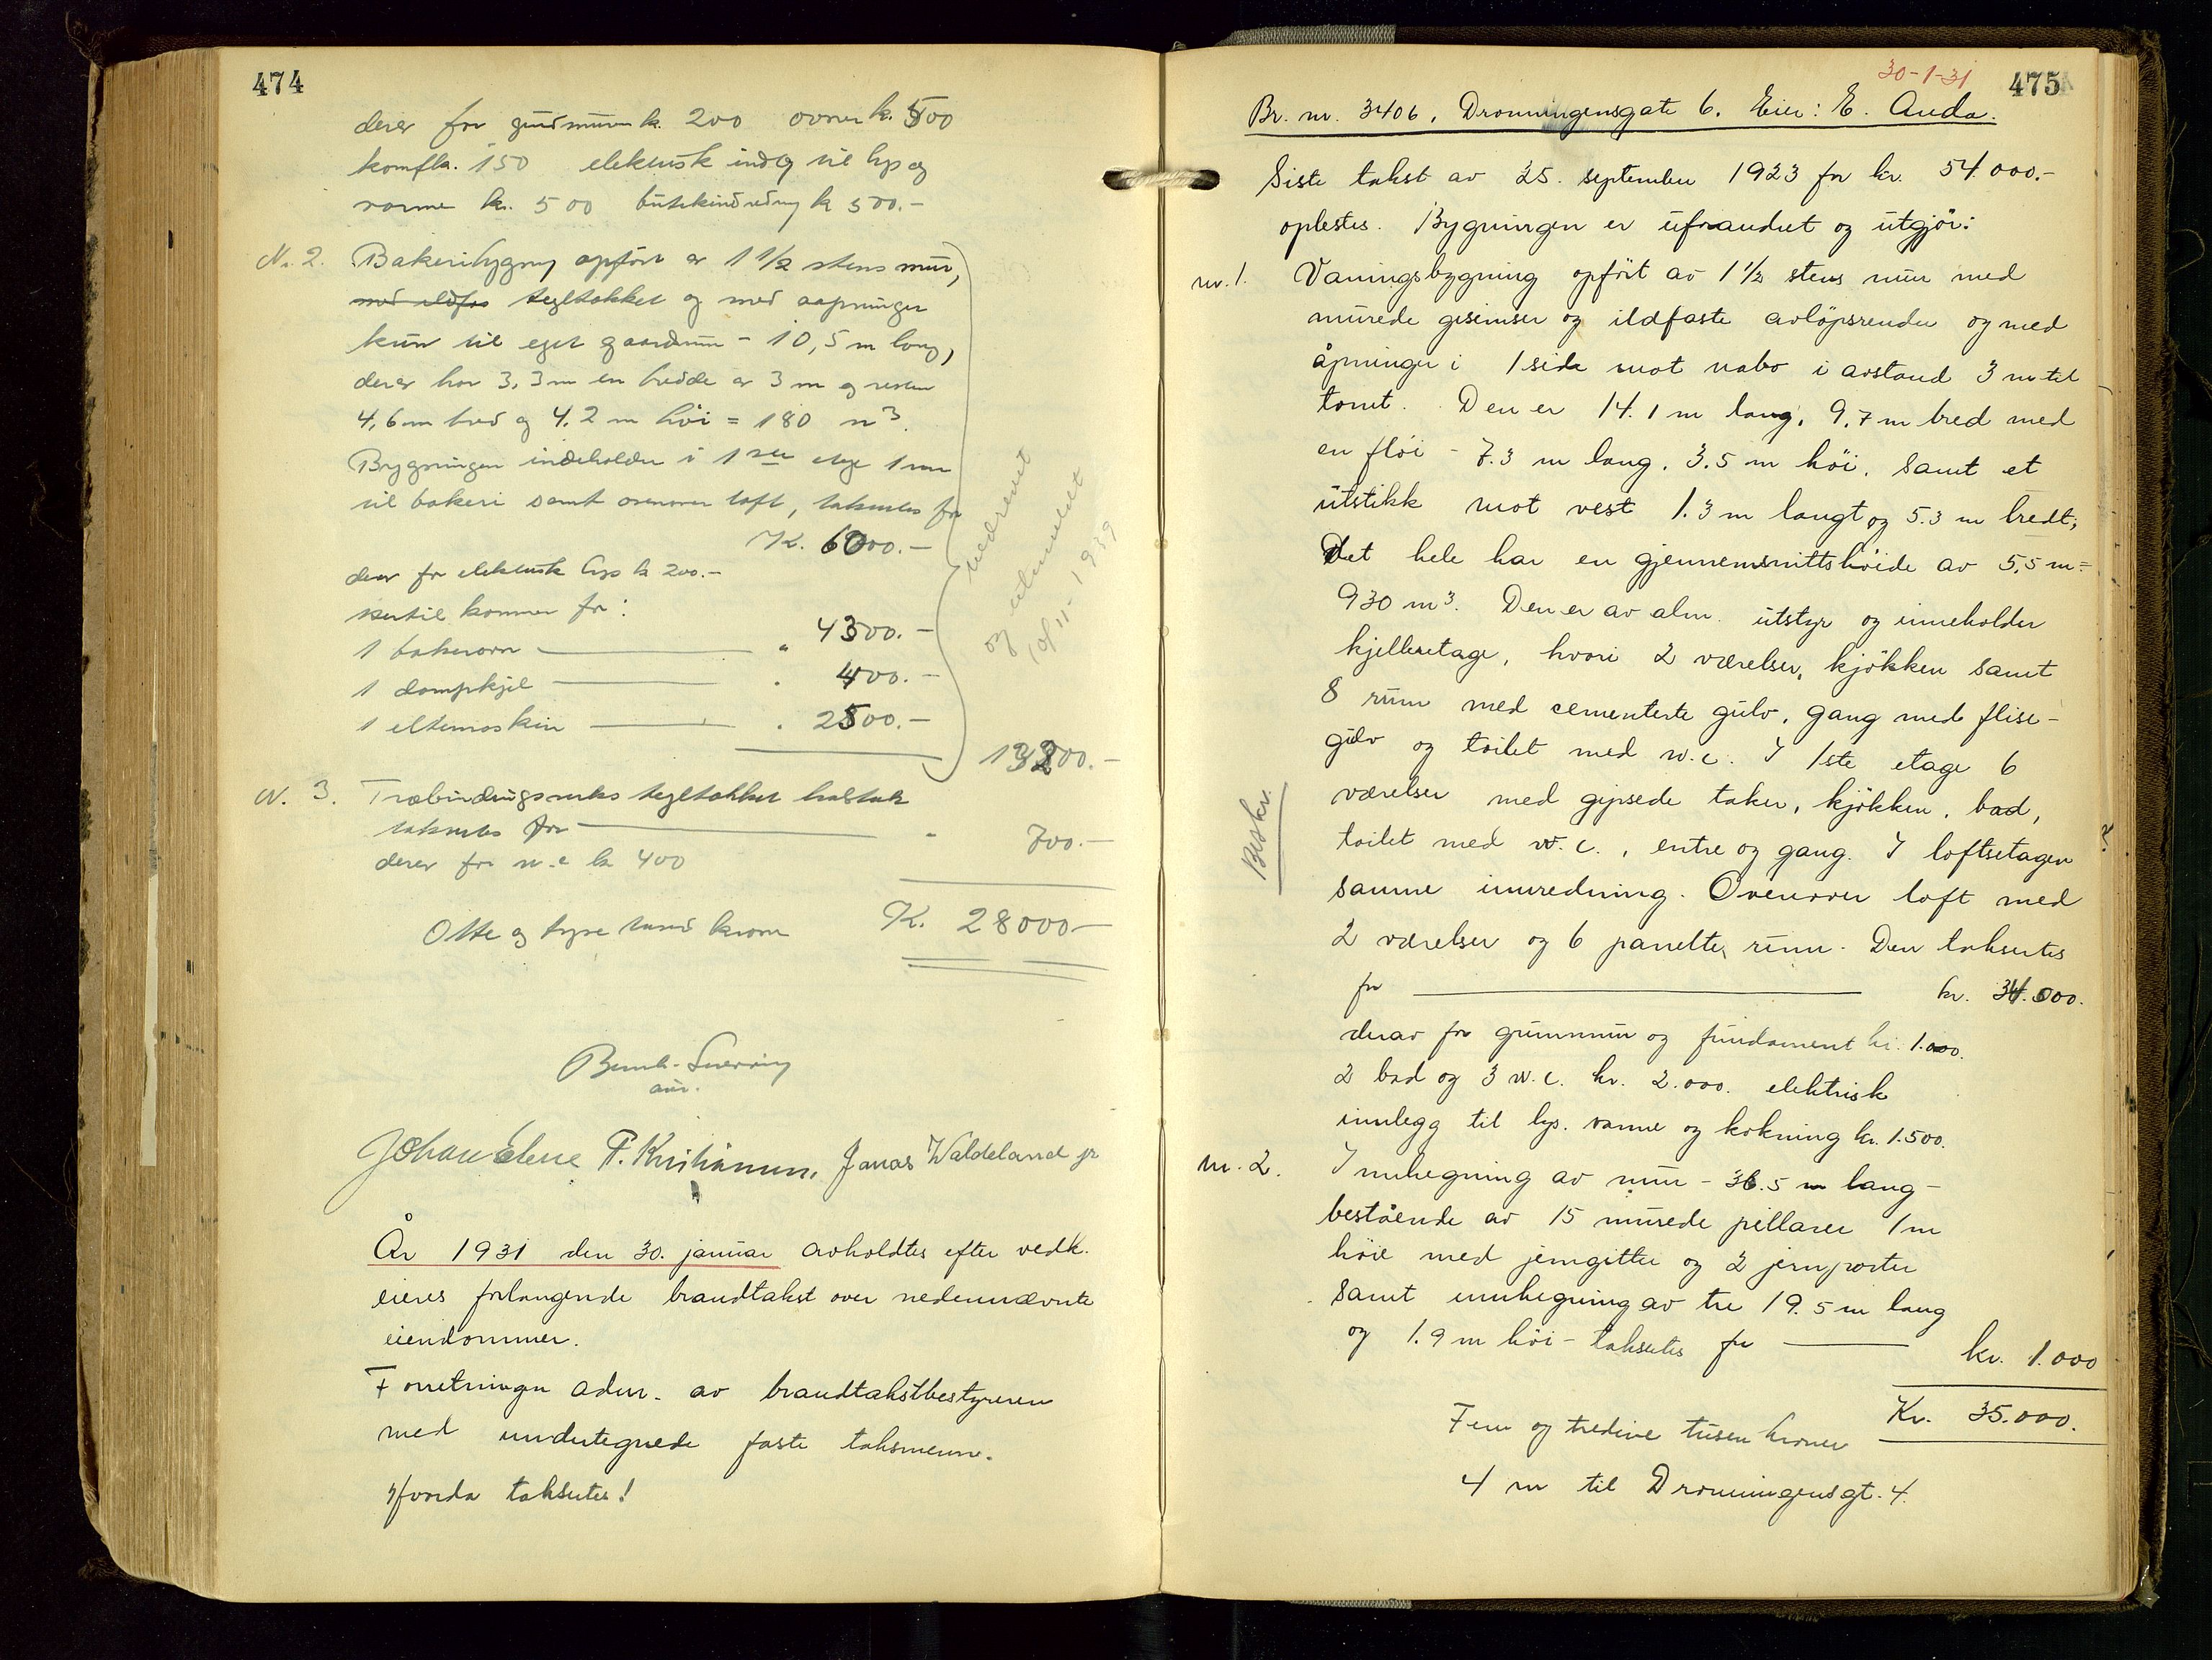 474
derav for grundmuren k. 200 ovner k. 500
komfln. 150 elektrisk indlg til lys og
varme kr. 500 butikindredning k 500.-
N. 2. Bakeribygning opført av 1 1/2 stens mur,
med ildfas tegltækket og med aapninger
kun til eget gaardsrum - 10,5 m lang,
derav har 3,3 m en bredde av 3 m og resten
4,6 m bred og 4,2 m høi = 180 m3.
Bygningen indeholder i 1ste etage 1 rum
til bakeri samt ovenover loft, takseres for
K. 6000.-
derav for elektrisk lys k 200.-
hertil kommer for:
1 bakerovn " 4300.-
1 dampkjel " 400.-
1 eltemaskin " 2500.-
13200.-
nedrevet
og utmeldt
10/11 - 1939
N. 3. Træbindingsverks tegltækket halvtak
takseres for " 700.-
derav for w.c k 400
Otte og tyve tusind kroner K. 28000-
Johan Elene P. Kristiansen, Jonas Waldeland jr
År 1931 den 30. januar avholdtes efter vedk.
eieres forlangende brandtakst over nedennævnte
eiendommer.
Forretningen adm. av brandtakstbestyreren
med undertegnede faste taksmenn.
Hvorda takseres!
30-1-31
475
Br. nr. 3406, Dronningensgate 6. Eier: E. Auda.
Siste takst av 25. september 1923 for kr. 54.000.-
oplestes. Bygningen er uforandret og utgjør:
nr. 1. Våningsbygning opført av 1 1/2 stens mur med
murede gesimser og ildfaste avløpsrender og med
åpninger i 1 side mot nabo i avstand 3 m til
tomt. Den er 14.1 m lang, 9,7 m bred med
en fløi - 7.3 m lang, 3.5 m høi, samt et
utstikk mot vest 1.3 m langt og 5.3 m bredt;
Det hele har en gjennemsnittshøide av 5,5 m =
930 m3. Den er av alm. utstyr og inneholder
kjelleretage, hvori 2 værelser, kjøkken samt
8 rum med cementerte gulv, gang med flise-
gulv og toilet med w.c. I 1ste etage 6
værelser med gipsede taker, kjøkken, bad,
toilet med w.c., entre og gang. I loftsetagen
samme innredning. Ovenover loft med
2 værelser og 6 panelte rum. Den takseres
for kr. 34.000.
Beskr.
derav for grunnmur og fundament kr. 1.000.
2 bad og 3 w.c. kr. 2.000. elektrisk
innlegg til lys, varme og kokning kr. 1.500.
nr. 2. Innhegning av mur - 36.5 m lang -
bestående av 15 murede pillarer 1 m
høie med jerngitter og 2 jernporter
samt innhegning av tre 19.5 m lang
og 1.9 m høi - takseres for kr. 1.000
Kr. 35.000.
Fem og tredive tusen kroner
4 m til Dronningensgt. 4.